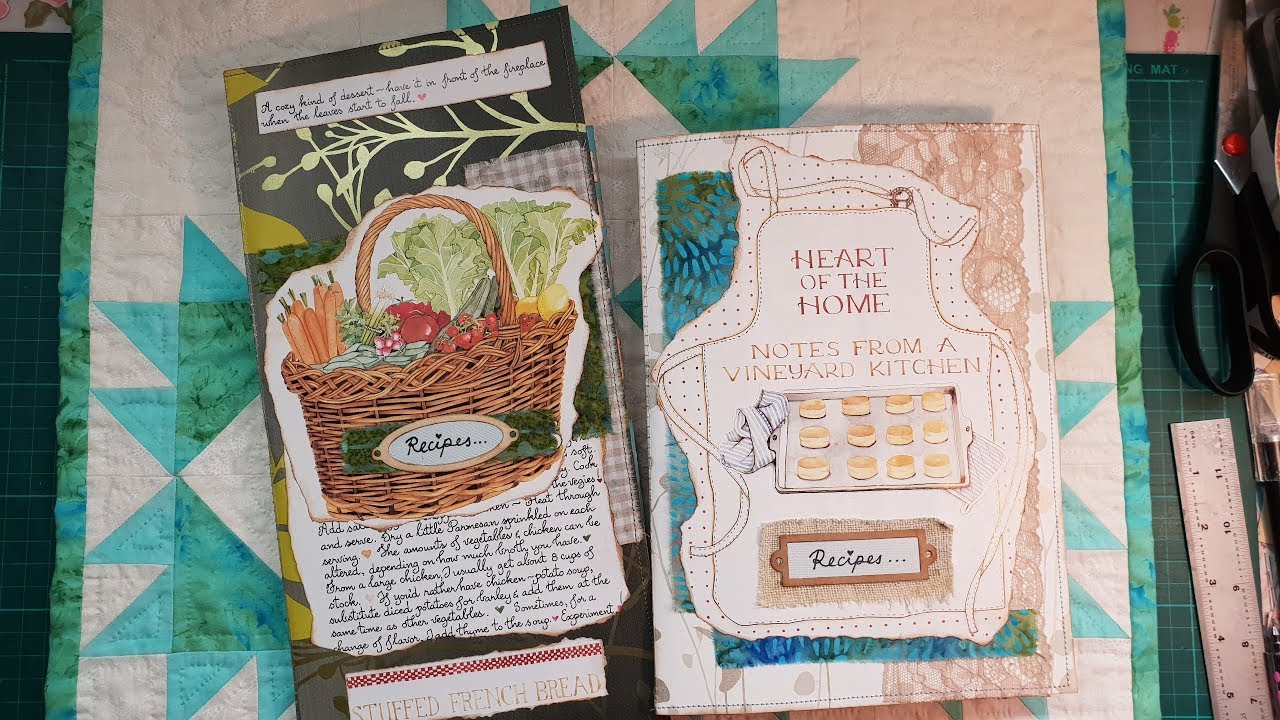 A cozy kind of dessert~have it in front of the fireplace
when the leaves start to fall.
Recipes...
soft
Cook
the vegies
Heat through
and serve. Try a little Parmesan sprinkled on each
serving. The amounts of vegetables & chicken can be
altered, depending on how much broth you have.
From a large chicken, I usually get about 8 cups of
stock. If you'd rather have chicken~potato soup,
substitute diced potatoes for barley & add them at the
same time as other vegetables. Sometimes, for a
change of flavor, I add thyme to the soup. Experiment
STUFFED FRENCH BREAD
HEART
OF THE
HOME
NOTES FROM A
VINEYARD KITCHEN
Recipes...
NG MAT